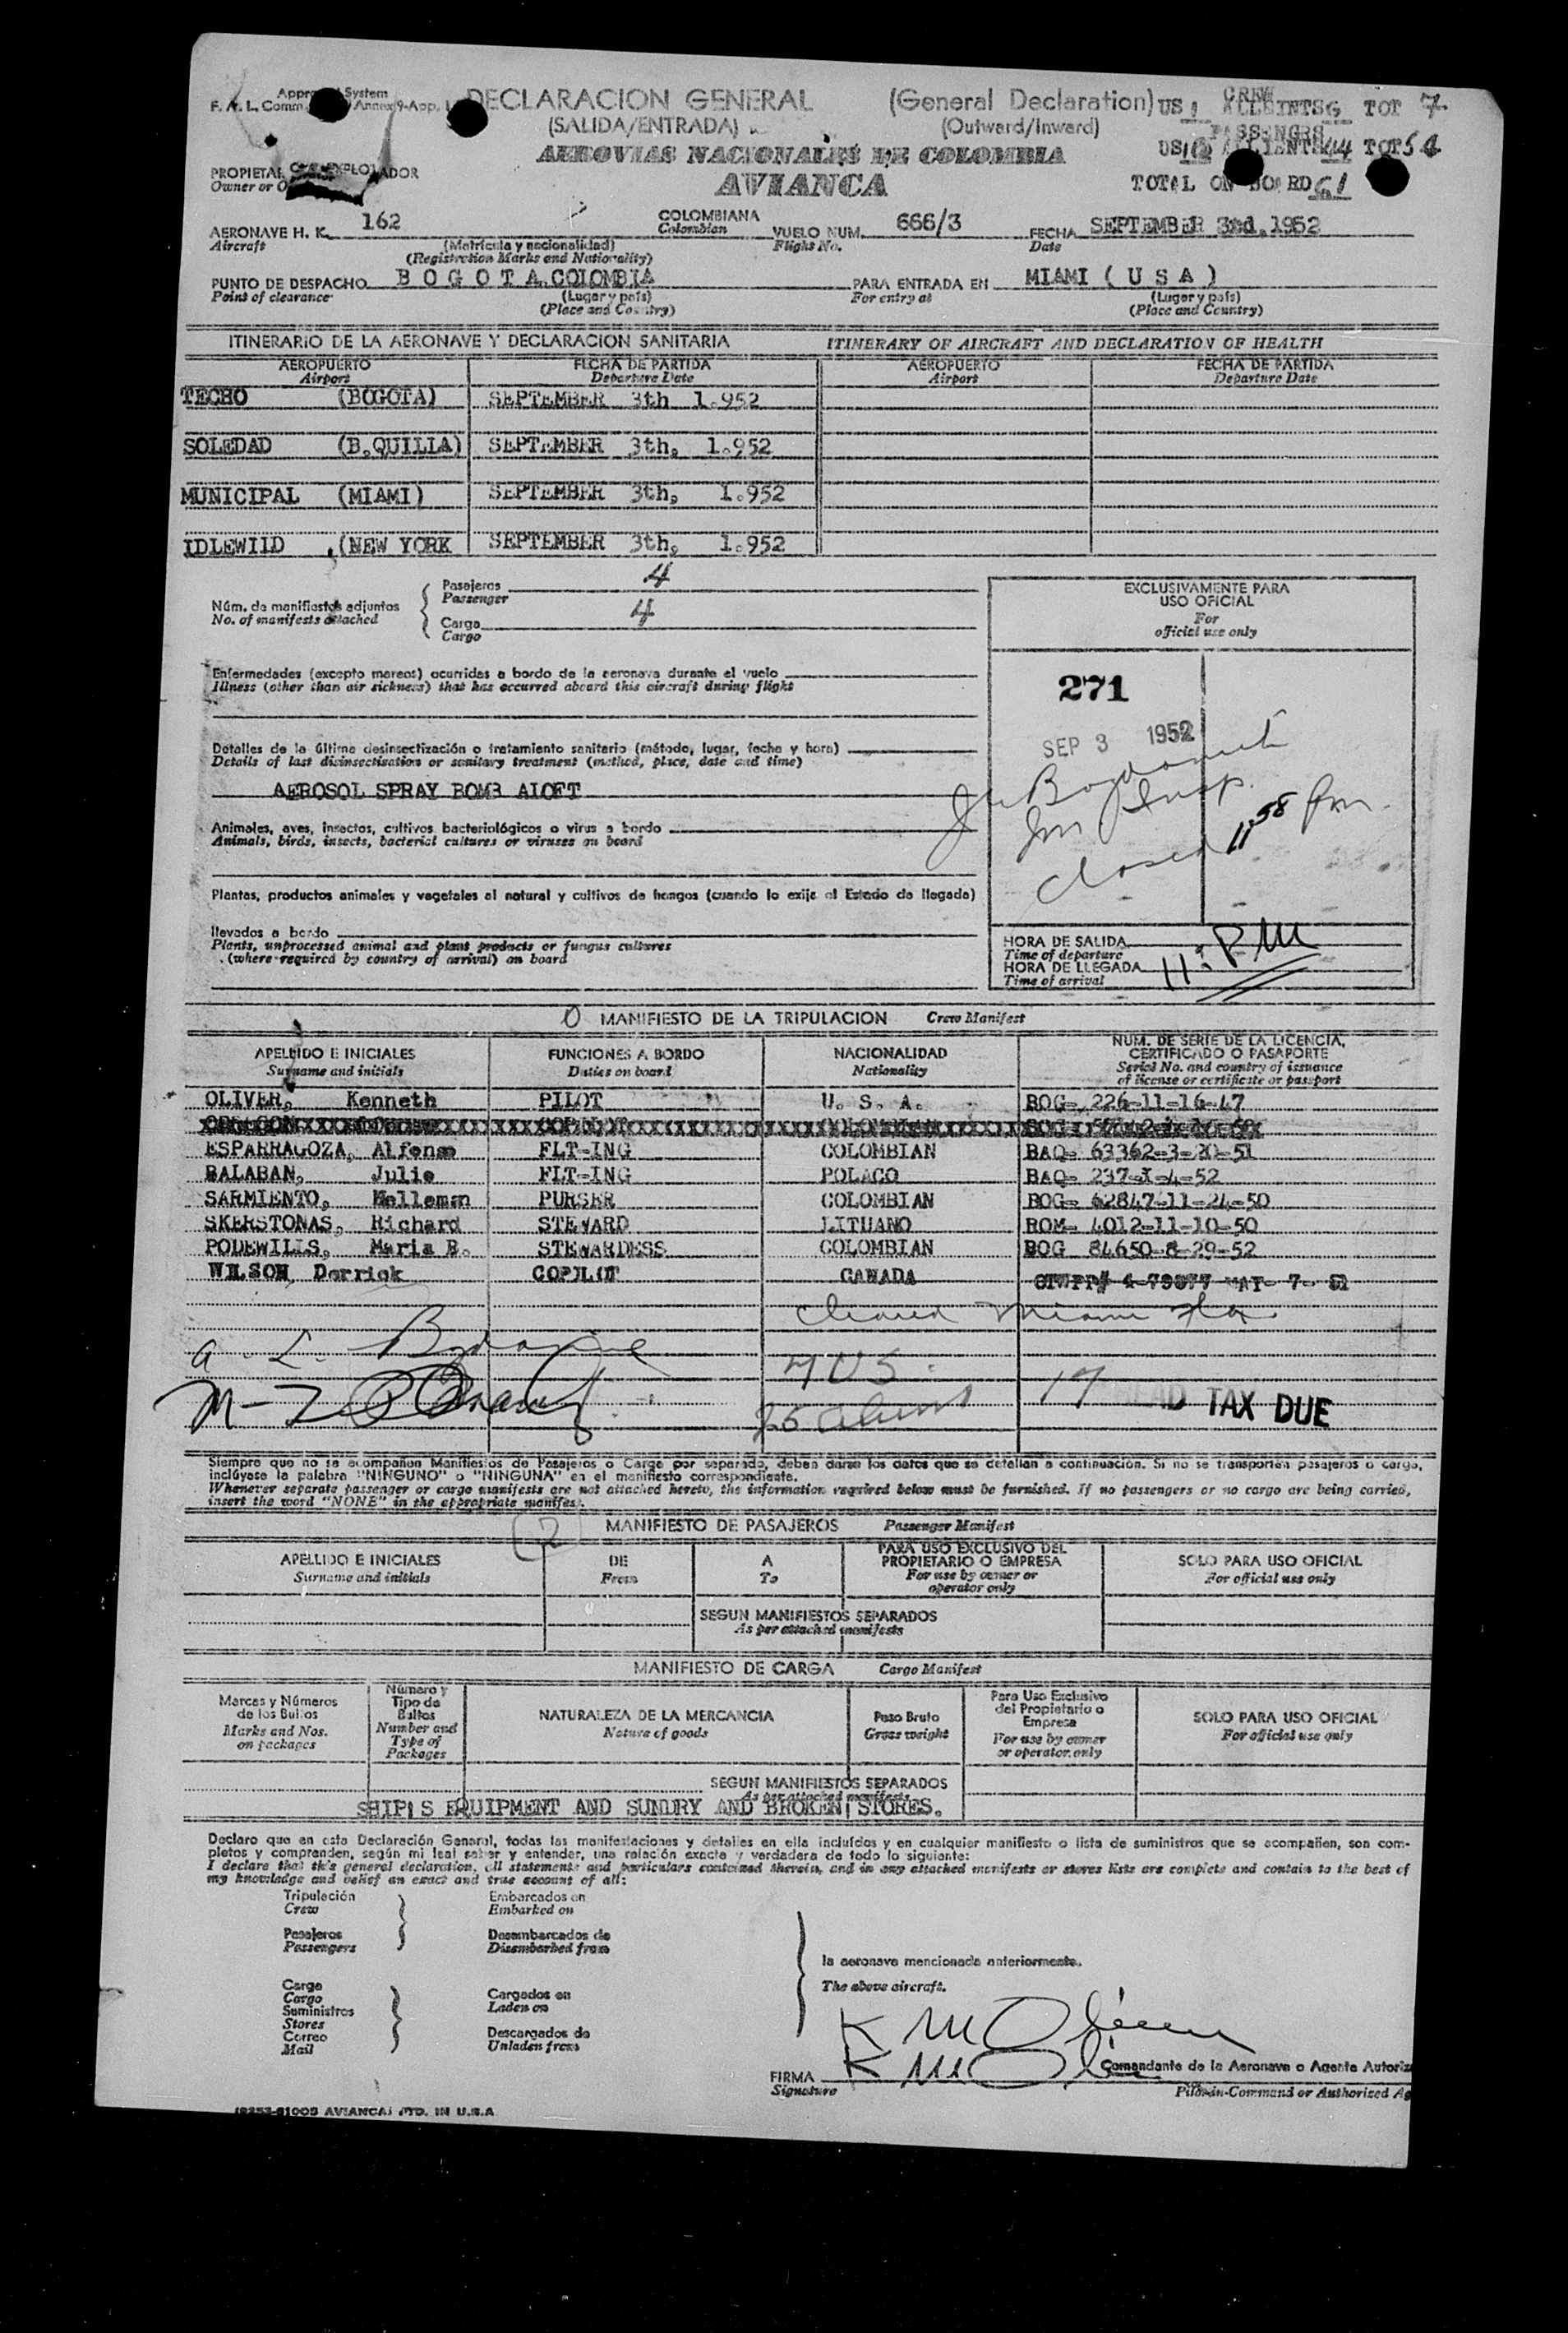 DECLARACION GENERAL (General Declaration) US 1 ALLEINTS 6 TOT 7
CREW
F. A. L. Comm. Annex 9-App. 1
System
(SALIDA/ENTRADA) (Outward/Inward)
PASSENGRS
AEROVIAS NACIONALES DE COLOMBIA
AVIANCA
TOTAL ON BOARD 61
Owner or
AERONAVE H. K. 162 COLOMBIANA VUELO NUM. 666/3 FECHA SEPTEMBER 3rd, 1952
Aircraft (Matrícula y nacionalidad) Colombian Flight No. Date
(Registration Marks and Nationality)
PUNTO DE DESPACHO BOGOTA, COLOMBIA PARA ENTRADA EN MIAMI ( U S A )
Point of clearance (Lugar y país) For entry at (Lugar y país)
(Place and Country) (Place and Country)
ITINERARIO DE LA AERONAVE Y DECLARACION SANITARIA ITINERARY OF AIRCRAFT AND DECLARATION OF HEALTH
AEROPUERTO FECHA DE PARTIDA AEROPUERTO FECHA DE PARTIDA
Airport Departure Date Airport Departure Date
TECHO (BOGOTA) SEPTEMBER 3th 1.952
SOLEDAD (B,QUILLA) SEPTEMBER 3th, 1.952
MUNICIPAL (MIAMI) SEPTEMBER 3th, 1.952
IDLEWILD ,(NEW YORK SEPTEMBER 3th, 1.952
Núm. de manifiestos adjuntos
No. of manifests attached
Pasajeros 4
Passenger
Carga 4
Cargo
EXCLUSIVAMENTE PARA
USO OFICIAL
For
official use only
Enfermedades (excepto mareos) ocurridas a bordo de la aeronave durante el vuelo
Illness (other than air sickness) that has occurred aboard this aircraft during flight
271
SEP 3 1952
Detalles de la última desinsectización o tratamiento sanitario (método, lugar, fecha y hora)
Details of last disinsectisation or sanitary treatment (method, place, date and time)
AEROSOL SPRAY BOMB ALOFT
Animales, aves, insectos, cultivos bacteriológicos o virus a bordo
Animals, birds, insects, bacterial cultures or viruses on board
closed 11 58 Pm.
Plantas, productos animales y vegetales al natural y cultivos de hongos (cuando lo exija el Estado de llegada)
llevados a bordo
Plants, unprocessed animal and plant products or fungus cultures
(where required by country of arrival) on board
HORA DE SALIDA
Time of departure
HORA DE LLEGADA 11: PM
Time of arrival
MANIFIESTO DE LA TRIPULACION Crew Manifest
APELLIDO E INICIALES FUNCIONES A BORDO NACIONALIDAD NUM. DE SERIE DE LA LICENCIA, CERTIFICADO O PASAPORTE
Surname and initials Duties on board Nationality Serial No. and country of issuance of license or certificate or passport
OLIVER, Kenneth PILOT U. S. A. BOG- 226-11-16-47
ESPARRAGOZA, Alfonso FLT-ING COLOMBIAN BAQ- 63362-3-20-51
BALABAN, Julio FLT-ING POLACO BAQ- 237-3-4-52
SARMIENTO, Kelleman PURSER COLOMBIAN BOG- 62847-11-24-50
SKERSTONAS, Richard STEWARD LITUANO ROM- 4012-11-10-50
PODEWILLS, Maria B. STEWARDESS COLOMBIAN BOG 84650-8-29-52
WILSON, Derrick COPILOT CANADA
Cleared Miami Fla
7 US.
17 HEAD TAX DUE
Siempre que no se acompañen Manifiestos de Pasajeros o Carga por separado, deben darse los datos que se detallan a continuación. Si no se transportan pasajeros o carga,
inclúyase la palabra "NINGUNO" o "NINGUNA" en el manifiesto correspondiente.
Whenever separate passenger or cargo manifests are not attached hereto, the information required below must be furnished. If no passengers or no cargo are being carried,
insert the word "NONE" in the appropriate manifest.
(2) MANIFIESTO DE PASAJEROS Passenger Manifest
APELLIDO E INICIALES DE A PARA USO EXCLUSIVO DEL PROPIETARIO O EMPRESA SOLO PARA USO OFICIAL
Surname and initials From To For use by owner or operator only For official use only
SEGUN MANIFIESTOS SEPARADOS
As per attached manifests
MANIFIESTO DE CARGA Cargo Manifest
Marcas y Números de los Bultos Número y Tipo de Bultos NATURALEZA DE LA MERCANCIA Peso Bruto Para Uso Exclusivo del Propietario o Empresa SOLO PARA USO OFICIAL
Marks and Nos. on packages Number and Type of Packages Nature of goods Gross weight For use by owner or operator only For official use only
SEGUN MANIFIESTOS SEPARADOS
As per attached manifests
SHIP'S EQUIPMENT AND SUNDRY AND BROKEN STORES.
Declaro que en esta Declaración General, todas las manifestaciones y detalles en ella incluídos y en cualquier manifiesto o lista de suministros que se acompañen, son com-
pletos y comprenden, según mi leal saber y entender, una relación exacta y verdadera de todo lo siguiente:
I declare that this general declaration, all statements and particulars contained therein, and in any attached manifests or stores lists are complete and contain to the best of
my knowledge and belief an exact and true account of all:
Tripulación Embarcados en
Crew Embarked on
Pasajeros Desembarcados de
Passengers Disembarked from
la aeronave mencionada anteriormente.
The above aircraft.
Carga Cargados en
Cargo Laden on
Suministros
Stores
Correo Descargados de
Mail Unladen from
K M Oliver
FIRMA K M Oliver Comandante de la Aeronave o Agente Autoriz
Signature Pilot-in-Command or Authorized Ag
AVIANCA PTD. IN U.S.A